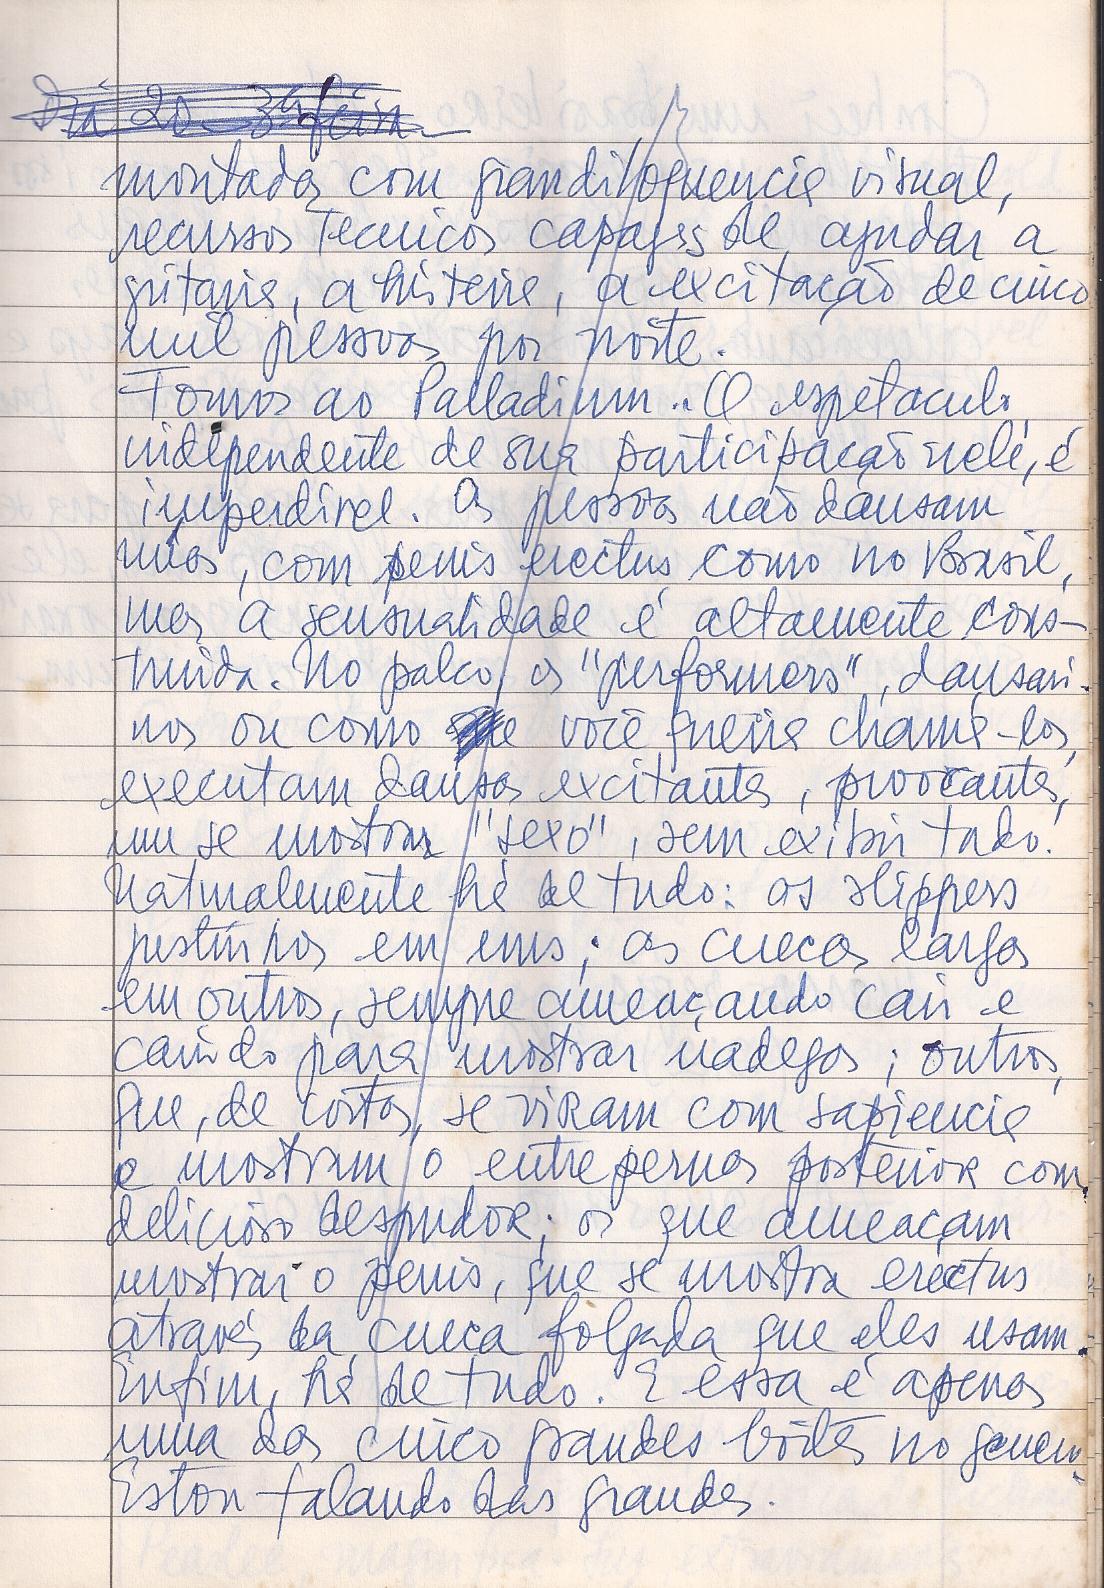 Dia 20 - 3ª feira
montadas com grandiloquencia visual,
recursos tecnicos capazes de ajudar a
gritaria, a histeria, a excitação de cinco
mil pessoas por noite.
Fomos ao Palladium. O espetaculo,
independente de sua participação nele, é
imperdivel. As pessoas não dansam
nuas, com penis erectus como no Brasil,
mas a sensualidade é altamente cons-
truida. No palco, os "performers", dansari-
nos ou como você queira chamá-los,
executam dansas excitantes, provocantes,
num se mostrar "sexo", sem exibir tudo.
Naturalmente há de tudo: os slippers
justinhos em uns; as cuecas largas
em outros, sempre ameaçando cair e
caindo para mostrar nadegas; outros,
que, de costas, se viram com sapiencia
e mostram o entrepernas posterior com
delicioso despudor; os que ameaçam
mostrar o penis, que se mostra erectus
através da cueca folgada que eles usam.
Enfim, há de tudo. E essa é apenas
uma das cinco grandes boites no genero.
Estou falando das grandes.